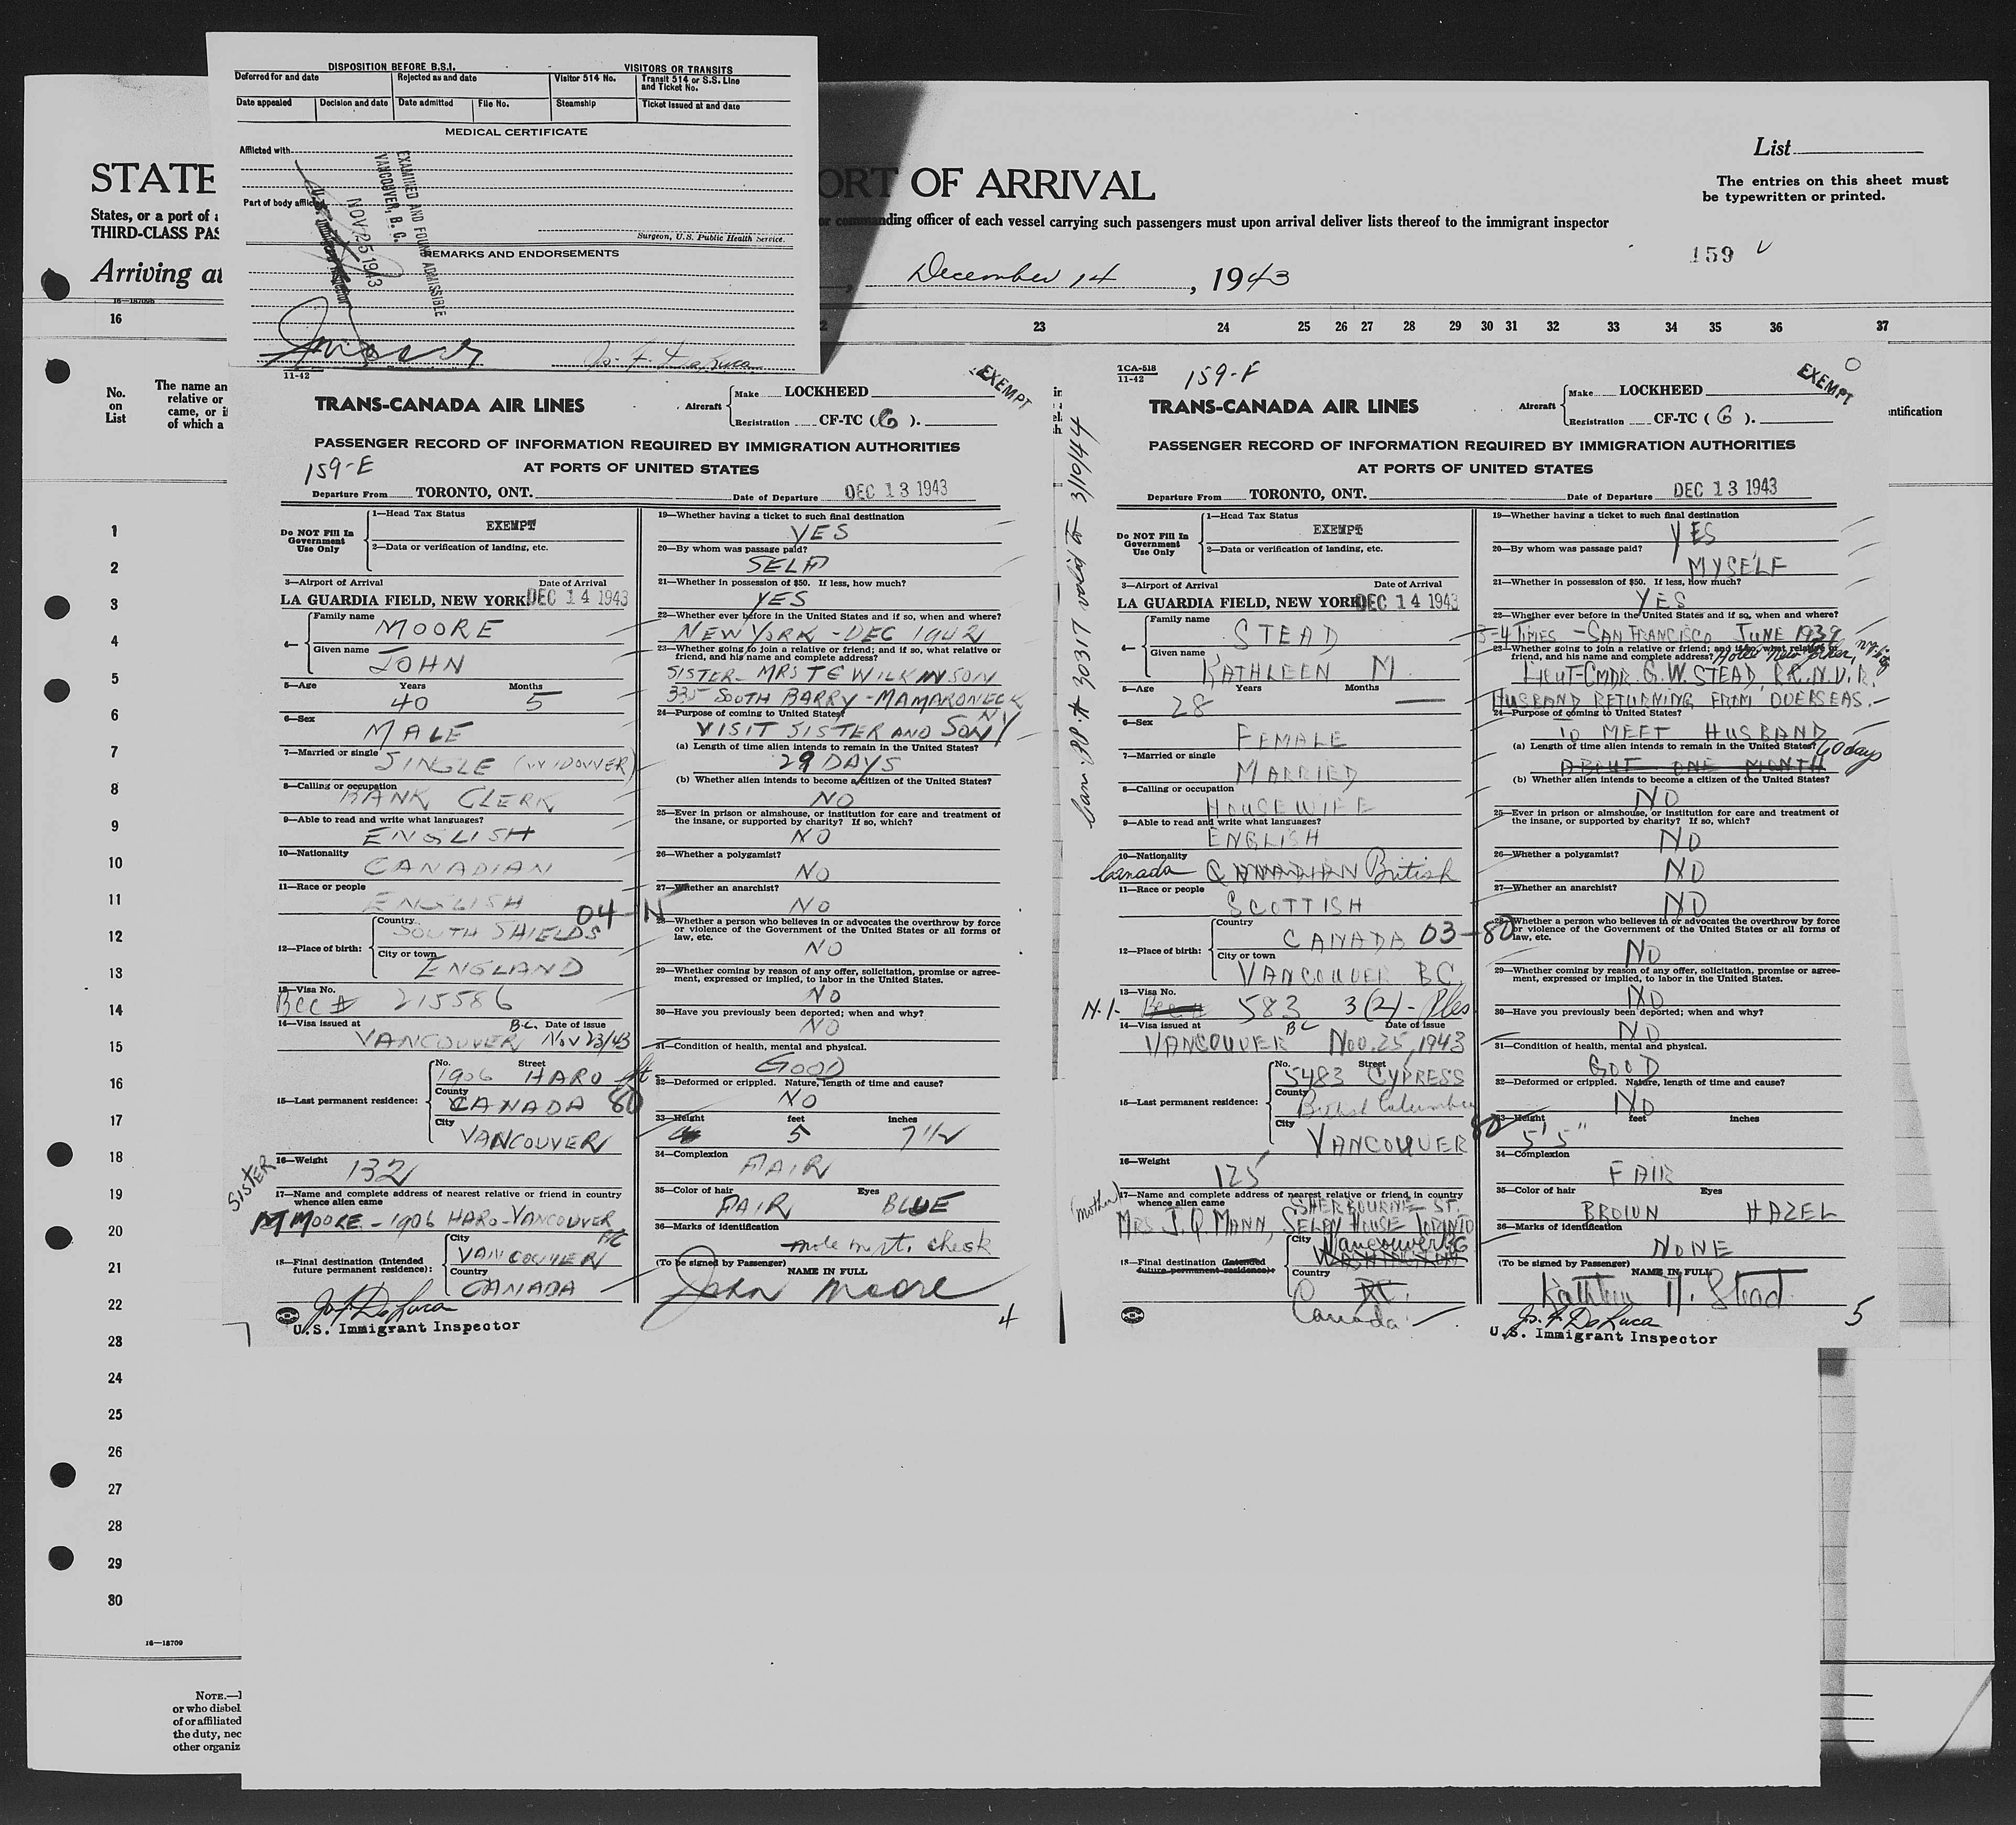 DISPOSITION BEFORE B.S.I.
VISITORS OR TRANSITS
Deferred for and date
Rejected as and date
Visitor 514 No.
Transit 514 or S.S. Line and Ticket No.
Date appealed
Decision and date
Date admitted
File No.
Steamship
Ticket issued at and date
MEDICAL CERTIFICATE
Afflicted with
Part of body
Surgeon, U.S. Public Health Service.
EXAMINED AND FOUND ADMISSIBLE
VANCOUVER, B. C.
NOV 25 1943
REMARKS AND ENDORSEMENTS
STATE
ORT OF ARRIVAL
List
The entries on this sheet must
be typewritten or printed.
States, or a port of
THIRD-CLASS PAS
or commanding officer of each vessel carrying such passengers must upon arrival deliver lists thereof to the immigrant inspector
Arriving at
December 14, 1943
159
16
23 24 25 26 27 28 29 30 31 32 33 34 35 36 37
No.
on
List
The name an
relative or
came, or i
of which a
ntification
11-42
TRANS-CANADA AIR LINES
Aircraft
Make LOCKHEED
Registration CF-TC (G).
EXEMPT
PASSENGER RECORD OF INFORMATION REQUIRED BY IMMIGRATION AUTHORITIES
AT PORTS OF UNITED STATES
159-E
Departure From TORONTO, ONT.
Date of Departure DEC 13 1943
Do NOT Fill In
Government
Use Only
1—Head Tax Status
EXEMPT
2—Data or verification of landing, etc.
3—Airport of Arrival
Date of Arrival
LA GUARDIA FIELD, NEW YORK DEC 14 1943
4—
Family name
MOORE
Given name
JOHN
5—Age Years Months
40 5
6—Sex
MALE
7—Married or single
SINGLE (WIDOWER)
8—Calling or occupation
BANK CLERK
9—Able to read and write what languages?
ENGLISH
10—Nationality
CANADIAN
11—Race or people
ENGLISH
04-N
12—Place of birth:
Country
SOUTH SHIELDS
City or town
ENGLAND
13—Visa No.
BCC # 215586
14—Visa issued at B.C. Date of issue
VANCOUVER NOV 23/43
15—Last permanent residence:
No. Street
1906 HARO St
County
CANADA 80
City
VANCOUVER
16—Weight
132
SISTER
17—Name and complete address of nearest relative or friend in country
whence alien came
M MOORE - 1906 HARO - VANCOUVER BC
18—Final destination (Intended
future permanent residence):
City
VANCOUVER
Country
CANADA
Jo. F. DeLuca
U.S. Immigrant Inspector
19—Whether having a ticket to such final destination
YES
20—By whom was passage paid?
SELF
21—Whether in possession of $50. If less, how much?
YES
22—Whether ever before in the United States and if so, when and where?
NEW YORK - DEC 1942
23—Whether going to join a relative or friend; and if so, what relative or
friend, and his name and complete address?
SISTER- MRS T E WILKINSON
335 SOUTH BARRY - MAMARONECK
NY
24—Purpose of coming to United States?
VISIT SISTER AND SON
(a) Length of time alien intends to remain in the United States?
29 DAYS
(b) Whether alien intends to become a citizen of the United States?
NO
25—Ever in prison or almshouse, or institution for care and treatment of
the insane, or supported by charity? If so, which?
NO
26—Whether a polygamist?
NO
27—Whether an anarchist?
NO
28—Whether a person who believes in or advocates the overthrow by force
or violence of the Government of the United States or all forms of
law, etc.
NO
29—Whether coming by reason of any offer, solicitation, promise or agree-
ment, expressed or implied, to labor in the United States.
NO
30—Have you previously been deported; when and why?
NO
31—Condition of health, mental and physical.
GOOD
32—Deformed or crippled. Nature, length of time and cause?
NO
33—Height feet inches
5 7 1/2
34—Complexion
FAIR
35—Color of hair Eyes
FAIR BLUE
36—Marks of identification
cheek
(To be signed by Passenger) NAME IN FULL
John Moore
4
TCA-518
11-42
159-F
TRANS-CANADA AIR LINES
Aircraft
Make LOCKHEED
Registration CF-TC (G).
EXEMPT
PASSENGER RECORD OF INFORMATION REQUIRED BY IMMIGRATION AUTHORITIES
AT PORTS OF UNITED STATES
Departure From TORONTO, ONT.
Date of Departure DEC 13 1943
Can. PP. # 30317 valid to 3/10/44
Do NOT Fill In
Government
Use Only
1—Head Tax Status
EXEMPT
2—Data or verification of landing, etc.
3—Airport of Arrival
Date of Arrival
LA GUARDIA FIELD, NEW YORK DEC 14 1943
4—
Family name
STEAD
Given name
KATHLEEN M.
5—Age Years Months
28 —
6—Sex
FEMALE
7—Married or single
MARRIED
8—Calling or occupation
HOUSEWIFE
9—Able to read and write what languages?
ENGLISH
10—Nationality
Canada CANADIAN British
11—Race or people
SCOTTISH
12—Place of birth:
Country
CANADA 03-80
City or town
VANCOUVER BC
13—Visa No.
583 3(2)-
14—Visa issued at BC Date of issue
VANCOUVER Nov. 25, 1943
15—Last permanent residence:
No. Street
5483 CYPRESS
County
British Columbia
City
VANCOUVER 80
16—Weight
125
(mother)
17—Name and complete address of nearest relative or friend in country
whence alien came
SHERBOURNE ST.
MRS J. Q MANN, SELBY HOUSE TORONTO
18—Final destination (Intended
future permanent residence):
City
Vancouver BC
WASHINGTON
Country
D.C.
Canada
19—Whether having a ticket to such final destination
YES
20—By whom was passage paid?
MYSELF
21—Whether in possession of $50. If less, how much?
YES
22—Whether ever before in the United States and if so, when and where?
3-4 TIMES - SAN FRANCISCO JUNE 1939
23—Whether going to join a relative or friend; and if so, what relative or
friend, and his name and complete address?
LIEUT-CMDR. G. W. STEAD, R.C.N.V.R.
HUSBAND RETURNING FROM OVERSEAS.
24—Purpose of coming to United States?
TO MEET HUSBAND
(a) Length of time alien intends to remain in the United States?
60 days
ABOUT ONE MONTH
(b) Whether alien intends to become a citizen of the United States?
NO
25—Ever in prison or almshouse, or institution for care and treatment of
the insane, or supported by charity? If so, which?
NO
26—Whether a polygamist?
NO
27—Whether an anarchist?
NO
28—Whether a person who believes in or advocates the overthrow by force
or violence of the Government of the United States or all forms of
law, etc.
NO
29—Whether coming by reason of any offer, solicitation, promise or agree-
ment, expressed or implied, to labor in the United States.
NO
30—Have you previously been deported; when and why?
NO
31—Condition of health, mental and physical.
GOOD
32—Deformed or crippled. Nature, length of time and cause?
NO
33—Height feet inches
5' 5"
34—Complexion
FAIR
35—Color of hair Eyes
BROWN HAZEL
36—Marks of identification
NONE
(To be signed by Passenger) NAME IN FULL
Kathleen M. Stead
Jo. F. DeLuca
U.S. Immigrant Inspector
5
1
2
3
4
5
6
7
8
9
10
11
12
13
14
15
16
17
18
19
20
21
22
23
24
25
26
27
28
29
30
16—18709
NOTE.—
or who disbel
of or affiliated
the duty, nec
other organiz